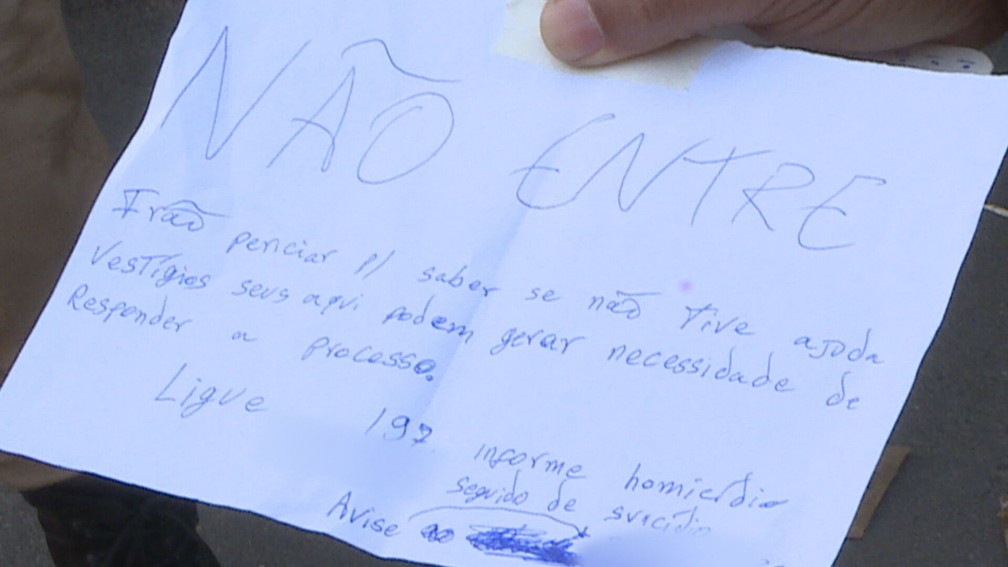 NÃO ENTRE
Irão periciar p/ saber se não tive ajuda
Vestígios seus aqui podem gerar necessidade de
Responder a processo.
Ligue 197 informe homicídio
seguido de suicídio
Avise ao